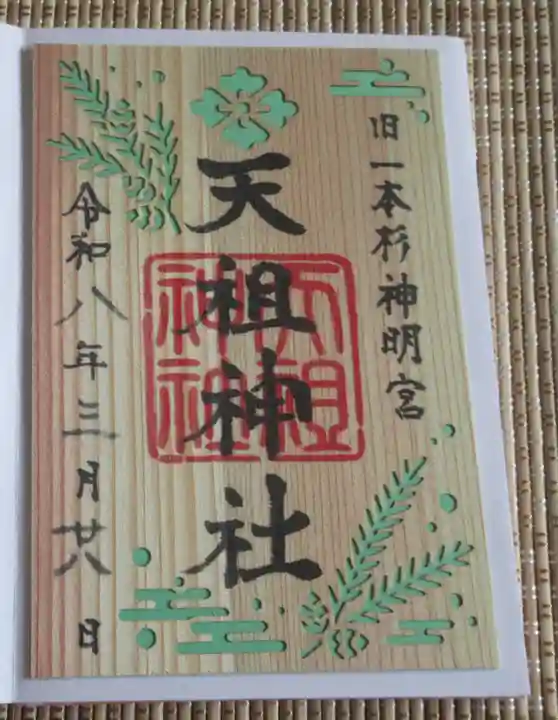 旧一本杉神明宮
天祖神社
天祖神社
令和八年三月廿八日